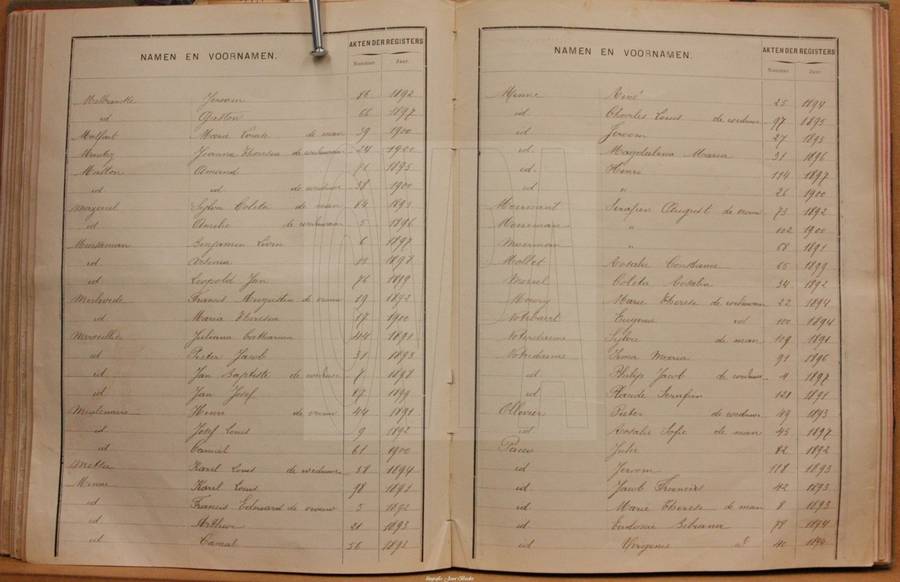 NAMEN EN VOORNAMEN. AKTEN DER REGISTERS
Nummer Jaar
Jeroom 86 1892
id Gaston 66 1897
Malfait Maria Louise de man 39 1900
Joanna Theresia de weduwe 24 1900
Matton Amand 76 1895
id id de weduwe 38 1900
Mazereel Sylvia Coleta de man 64 1893
id Amelie de weduwe 5 1896
Meersseman Benjamin Livin 6 1897
id Antonia 1898
id Leopold Jan 76 1899
Francis Augustin de vrouw 19 1892
id Maria Theresia 17 1900
Juliana Catharina 44 1891
id Pieter Jacob 31 1893
id Jan Baptiste de weduwe 7 1898
id Jan Josef 17 1899
Meulenaere Henri de vrouw 44 1891
id Josef Louis 9 1892
id Camiel 61 1900
Karel Louis de weduwe 58 1894
Minne Karel Louis 98 1892
id Francis Edouard de vrouw 3 1892
id Arthur 21 1893
id Camiel 56 1892
NAMEN EN VOORNAMEN. AKTEN DER REGISTERS
Nummer Jaar
Minne René 25 1894
id Charles Louis de weduwe 97 1895
id Jeroom 27 1895
id Magdalena Maria 31 1896
id. Henri 114 1897
id " 26 1900
Serafien August de vrouw 73 1892
Moerman " 102 1900
Moerman " 68 1891
Mollet Rosalie Constance 65 1899
Morel Coleta Rosalia 34 1892
Moury Marie Therese de weduwe 22 1894
Eugenie id 100 1894
Noterdaeme Sylvie de man 109 1891
Noterdaeme Irma Maria 91 1896
id Philip Jacob de weduwe 9 1897
id Claude Serafien 121 1891
Ollevier Pieter de weduwe 49 1893
id Rosalie Sofie de man 43 1897
Julie 82 1892
id Jeroom 118 1893
id Jacob Francies 42 1893
id Marie Therese de man 8 1893
id Eudoxie Sidonia 78 1894
id Virginie id 40 1894